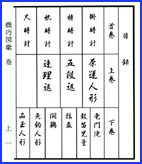 目録
首巻 上巻 下巻
掛時計 茶運人形 竜門滝
鼓笛児童
櫓時計 五段返 揺盃
枕時計 連理返 闘鶏
魚釣人形
尺時計 品玉人形
機巧図彙 巻 上 一